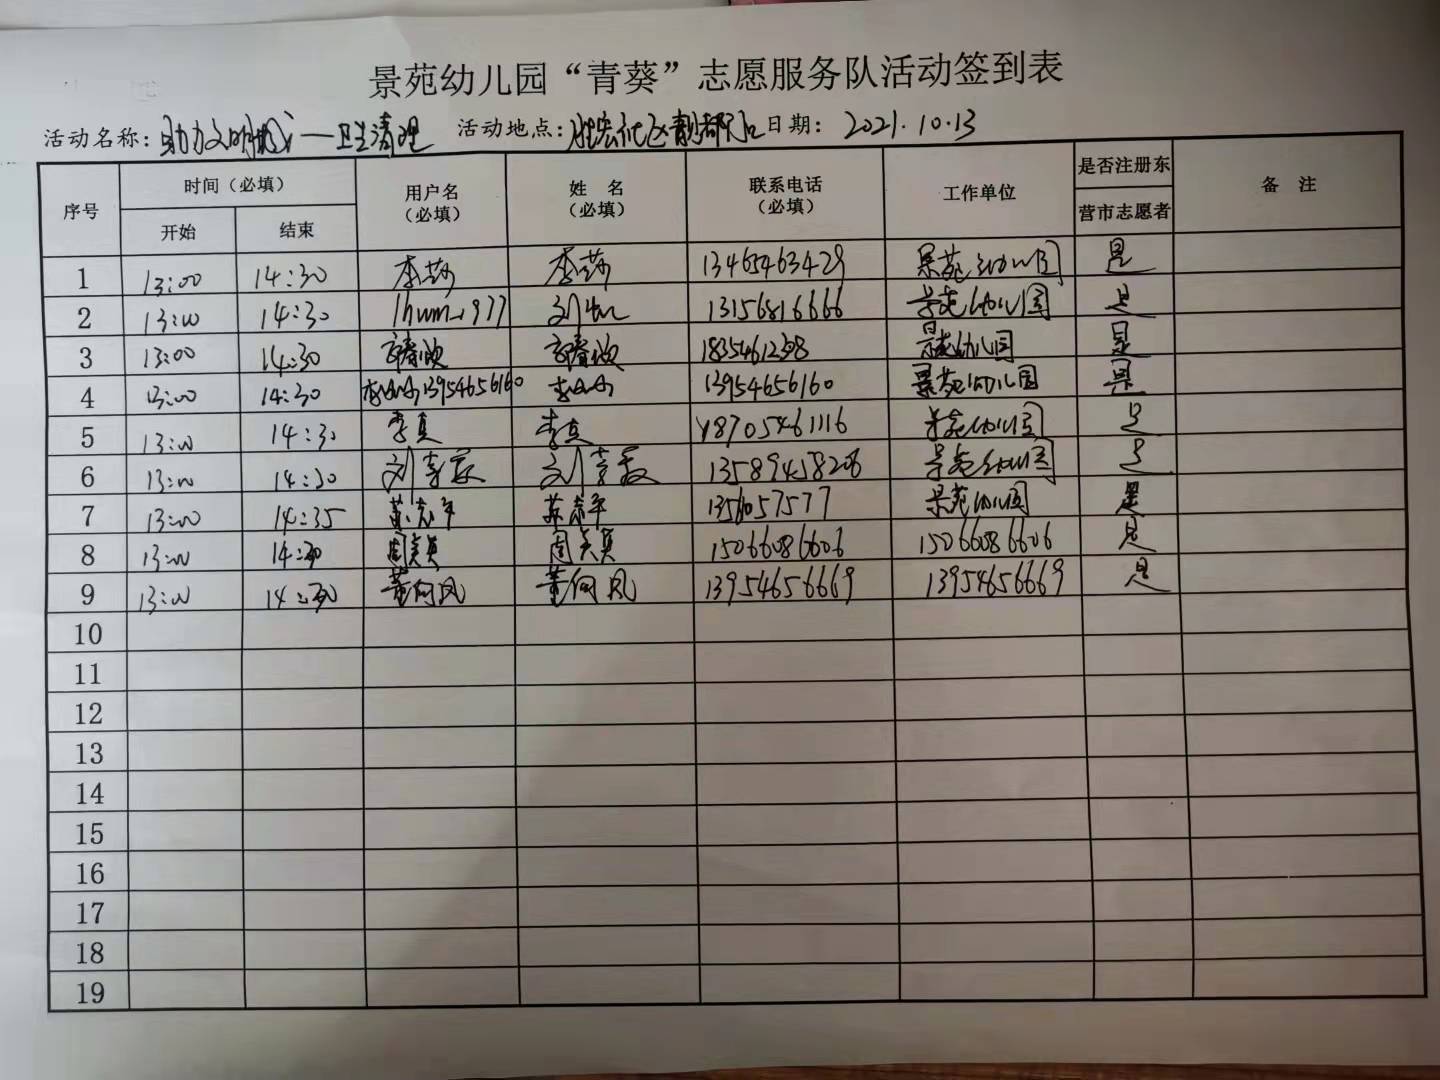 景苑幼儿园“青葵”志愿服务队活动签到表
活动名称：助力文明城市—卫生清理 活动地点：胜宏社区 日期：2021.10.13
序号 时间（必填） 用户名（必填） 姓 名（必填） 联系电话（必填） 工作单位 是否注册东营市志愿者 备 注
开始 结束
1 13:00 14:30 李莎 李莎 13465463429 景苑幼儿园 是
2 13:00 14:30 刘 13156816666 景苑幼儿园 是
3 13:00 14:30 景苑幼儿园 是
4 13:00 14:30 李山山13954656160 李山山 13954656160 景苑幼儿园 是
5 13:00 14:30 李真 李真 18705461116 景苑幼儿园 是
6 13:00 14:30 刘 刘 13589458208 景苑幼儿园 是
7 13:00 14:35 1356057577 景苑幼儿园 是
8 13:00 14:30 周 周 15066086606 15066086606 是
9 13:00 14:30 董向凤 董向凤 13954656669 13954656669 是
10
11
12
13
14
15
16
17
18
19